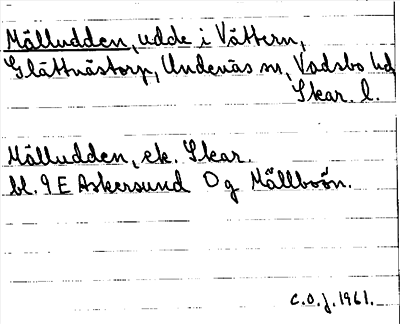 Mälludden, udde i Vättern,
Slättvästorp, Undenäs sn, Vadsbo hd
Skar. l.
Mälludden, ek. Skar.
bl. 9 E Askersund Og Mällboön.
C.O.J. 1961.